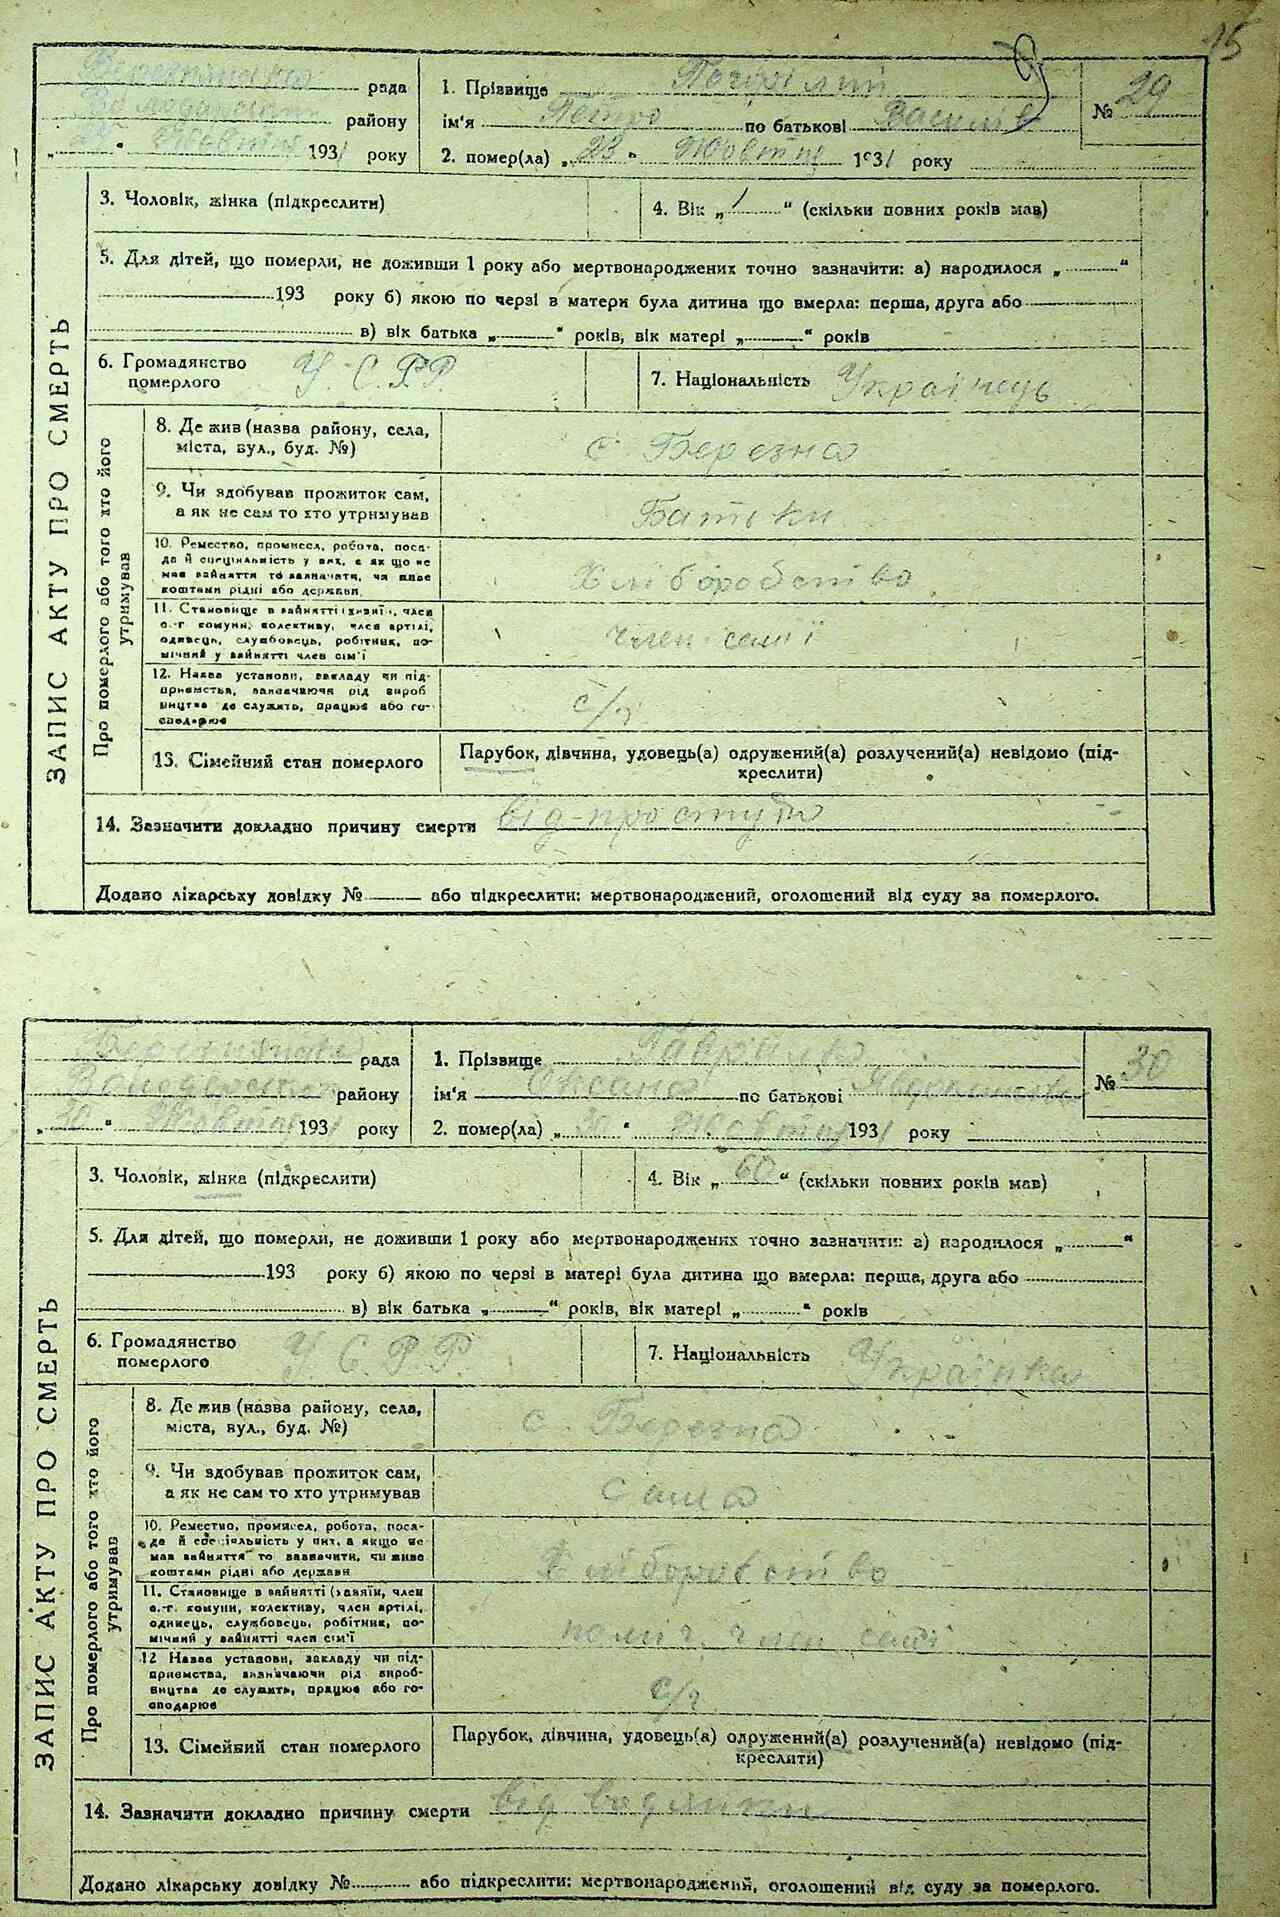 15
рада
1. Прізвище
№ 29
району
ім'я Петро по батькові Василів
" Жовтня 1931 року
2. помер(ла) „23" Жовтня 1931 року
ЗАПИС АКТУ ПРО СМЕРТЬ
3. Чоловік, жінка (підкреслити)
4. Вік „1" (скільки повних років мав)
5. Для дітей, що померли, не доживши 1 року або мертвонароджених точно зазначити: а) народилося „ "
193 року б) якою по черзі в матери була дитина що вмерла: перша, друга або
в) вік батька „ " років, вік матері „ " років
6. Громадянство
померлого
У.С.Р.Р.
7. Національність Українець
Про померлого або того хто його
утримував
8. Де жив (назва району, села,
міста, вул., буд. №)
с Березна
9. Чи здобував прожиток сам,
а як не сам то хто утримував
Батьки
10. Ремество, промисел, робота, поса-
да й спеціяльність у них, а як що не
мав зайняття то зазначити, чи живе
коштами рідні або держави
Хліборобство
11. Становище в зайнятті (хазяїн, член
с.-г комуни, колективу, член артілі,
одинець, службовець, робітник, по-
мічний у зайнятті член сім'ї
член семії
12. Назва установи, закладу чи під-
приємства, зазначаючи рід вироб
ництва де служить, працює або го-
сподарює
с/г
13. Сімейний стан померлого
Парубок, дівчина, удовець(а) одружений(а) розлучений(а) невідомо (під-
креслити)
14. Зазначити докладно причину смерти від простуди
Додано лікарську довідку № або підкреслити: мертвонароджений, оголошений від суду за померлого.
рада
1. Прізвище
№ 30
району
ім'я Оксана по батькові
„30" Жовтня 1931 року
2. помер(ла) „30" Жовтня 1931 року
ЗАПИС АКТУ ПРО СМЕРТЬ
3. Чоловік, жінка (підкреслити)
4. Вік „60" (скільки повних років мав)
5. Для дітей, що померли, не доживши 1 року або мертвонароджених точно зазначити: а) народилося „ "
193 року б) якою по черзі в матері була дитина що вмерла: перша, друга або
в) вік батька „ " років, вік матері „ " років
6. Громадянство
померлого
У.С.Р.Р.
7. Національність Українка
Про померлого або того хто його
утримував
8. Де жив (назва району, села,
міста, вул., буд. №)
с. Березна
9. Чи здобував прожиток сам,
а як не сам то хто утримував
сама
10. Ремество, промисел, робота, поса-
да й спеціяльність у них, а якщо не
мав зайняття то зазначити, чи живе
коштами рідні або держави
Хліборобство
11. Становище в зайнятті (хазяїн, член
с.-г. комуни, колективу, член артілі,
одинець, службовець, робітник, по-
мічний у зайнятті член сім'ї
поміч. член семії
12 Назва установи, закладу чи під-
приємства, зазначаючи рід вироб-
ництва де служить, працює або го-
сподарює
с/г
13. Сімейний стан померлого
Парубок, дівчина, удовець(а) одружений(а) розлучений(а) невідомо (під-
креслити)
14. Зазначити докладно причину смерти від водянки
Додано лікарську довідку № або підкреслити: мертвонароджений, оголошений від суду за померлого.